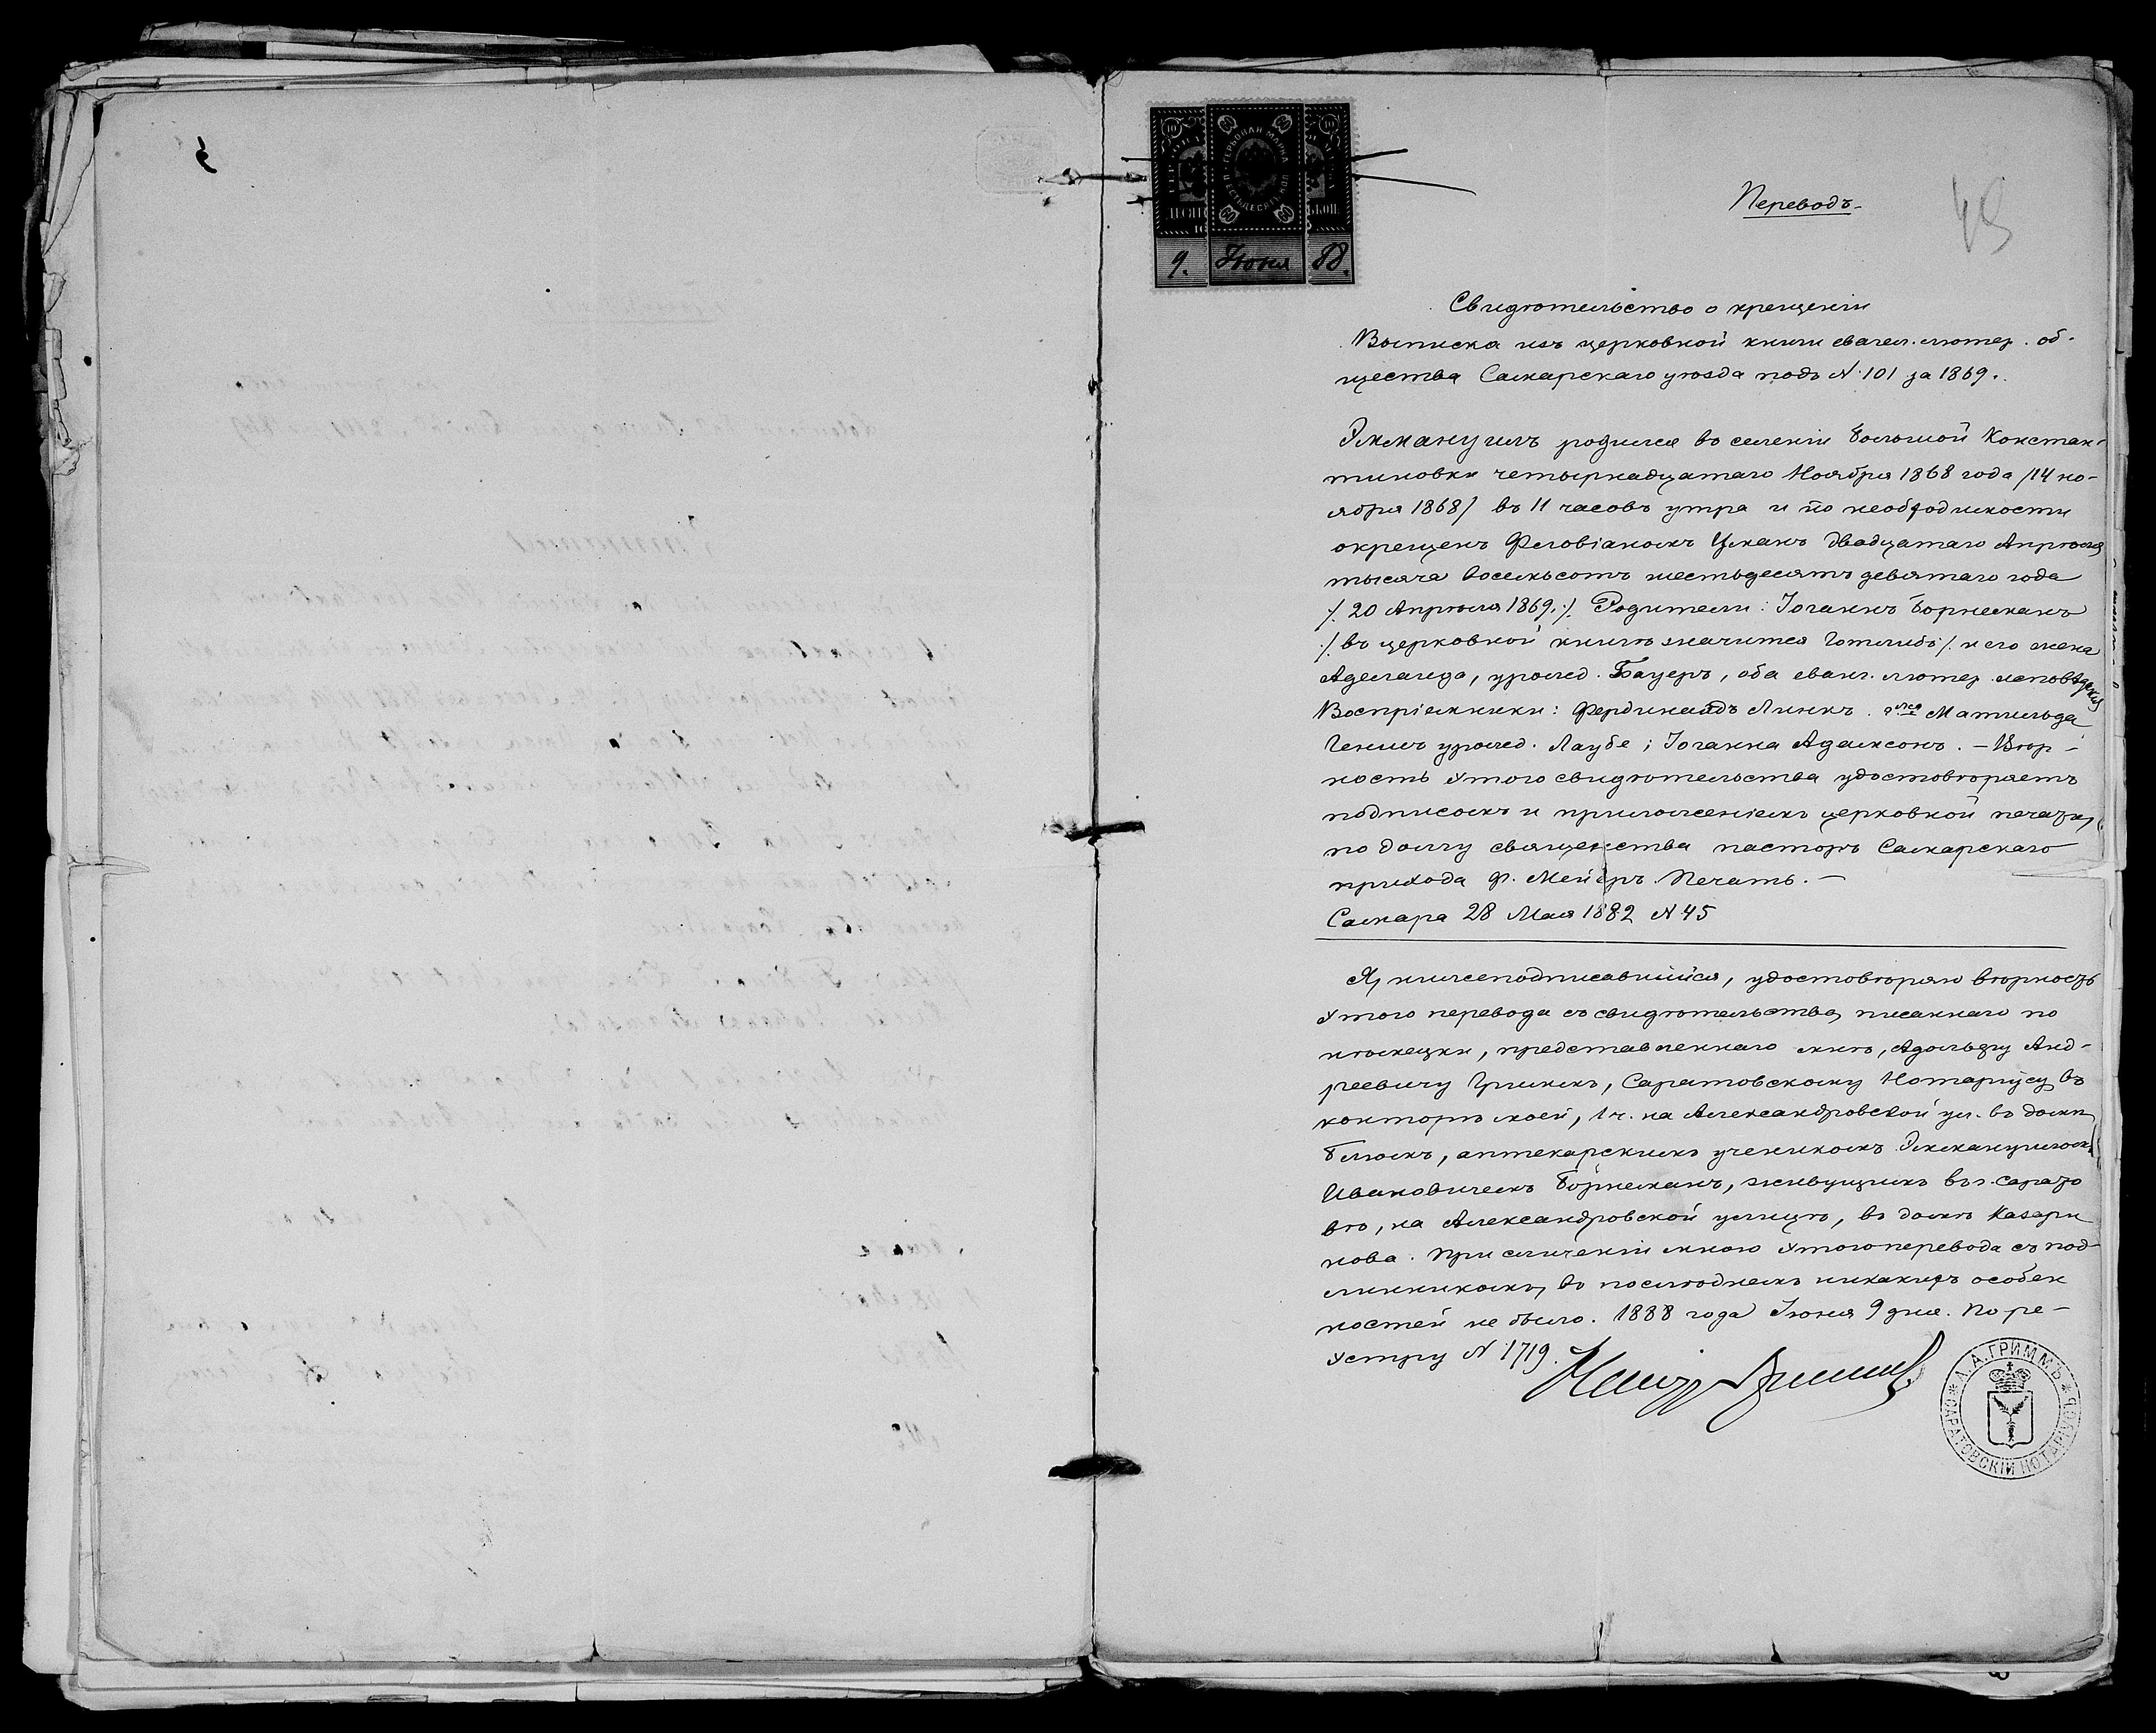 Переводъ
49
ГЕРБОВАЯ МАРКА
ШЕСТЬДЕСЯТЪ КОП.
9. Іюня 88.
Свидѣтельство о крещеніи
Выписка изъ церковной книги евангел. лютер. об-
щества Самарскаго уѣзда подъ N. 101 за 1869.
Эммануилъ родился въ селеніи Большой Констан-
тиновки четырнадцатаго Ноября 1868 года /14 но-
ября 1868/ въ 11 часовъ утра и по необходимости
окрещенъ Фловіаномъ Цманъ двадцатаго Апрѣля
тысяча восемьсотъ шестьдесятъ девятаго года
/. 20 Апрѣля 1869./. Родители: Іоганнъ Борнеманъ
/. въ церковной книгѣ значится Готлибъ /. и его жена
Аделаида, урожд. Бауеръ, оба еванг. лютер. исповѣданія
Воспріемники: Фердинандъ Линкъ. Матильда
Генигъ урожд. Лаубе; Іоганна Адамсонъ. — Вѣр-
ность этого свидѣтельства удостовѣряетъ
подписомъ и приложеніемъ церковной печати,
по долгу священства пасторъ Самарскаго
прихода Ф. Мейеръ. Печать. —
Самара 28 Мая 1882 N 45
Я, нижеподписавшійся, удостовѣряю вѣрность
этого перевода съ свидѣтельства, писаннаго по
нѣмецки, представленнаго мнѣ, Адольфу Анд-
реевичу Гриммъ, Саратовскому Нотаріусу, въ
конторѣ моей, 1 ч. на Александровской ул. въ домѣ
Блюмъ, аптекарскимъ ученикомъ Эммануиломъ
Ивановичемъ Борнеманъ, живущимъ въ г. Сарато
вѣ, на Александровской улицѣ, въ домѣ Казари
нова. При сличеніи мною этого перевода съ под-
линникомъ, въ послѣднемъ никакихъ особен
ностей не было. 1888 года Іюня 9 дня. По ре-
эстру N 1719.
А. А. ГРИММЪ
САРАТОВСКІЙ НОТАРІУСЪ